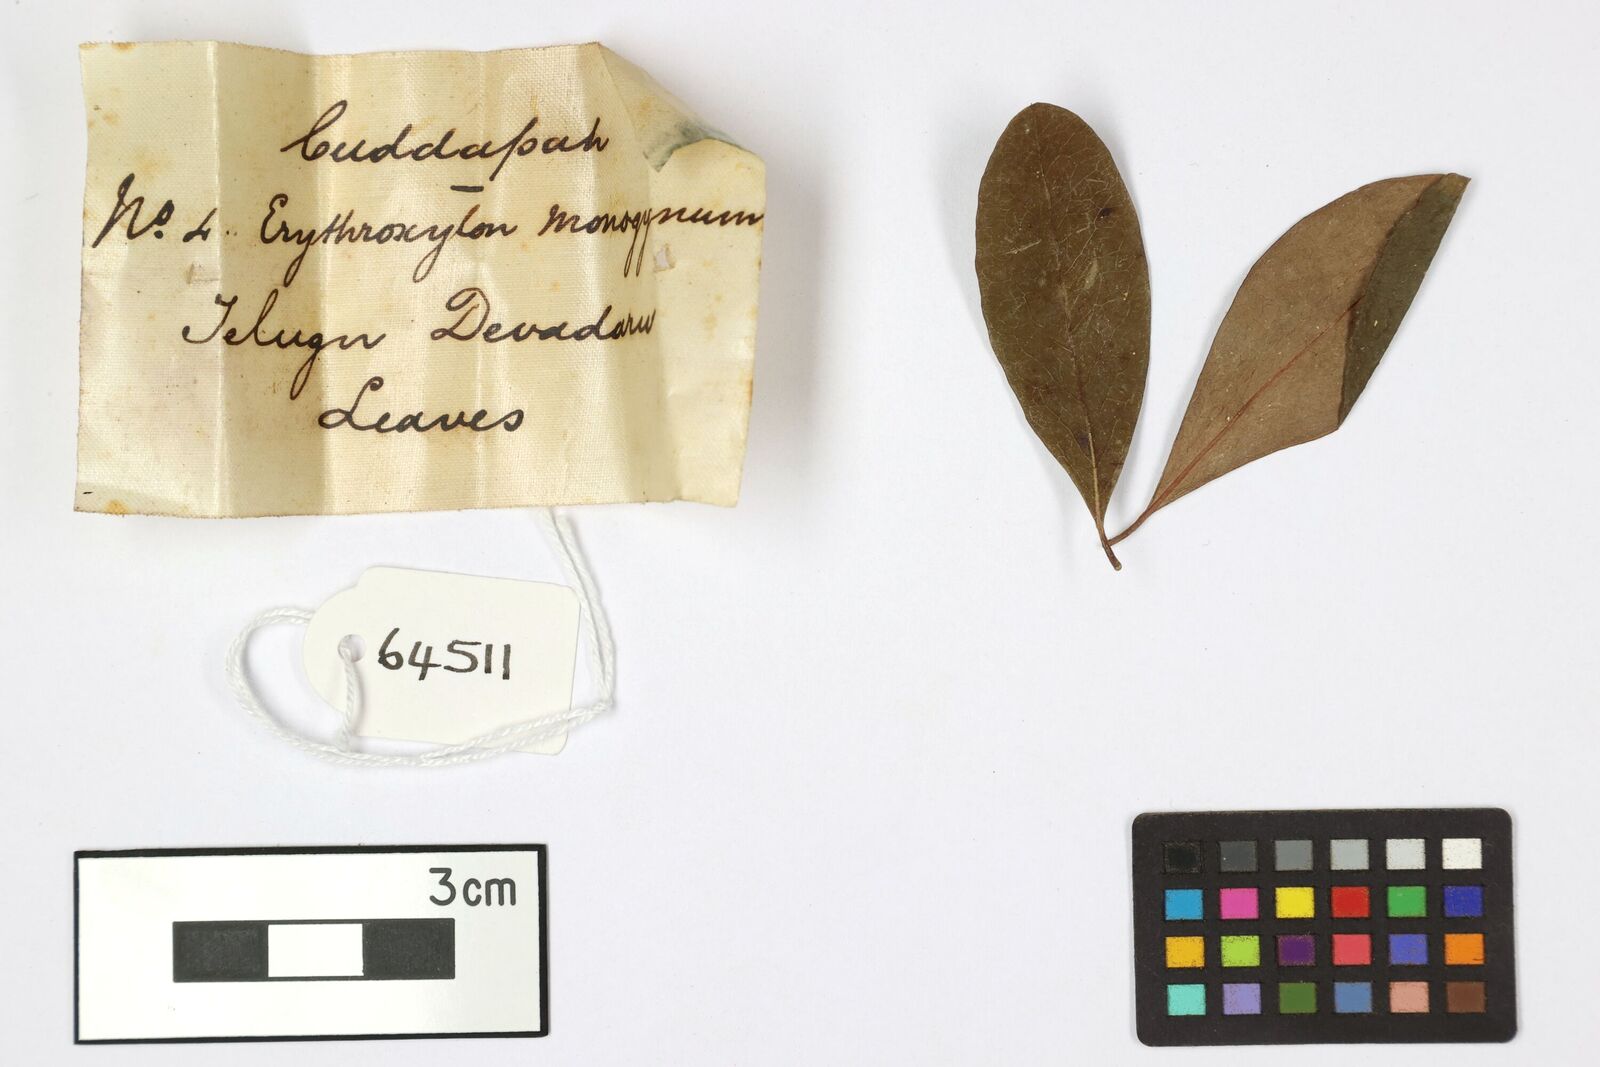 Cuddapah
No. 4. Erythroxylon monogynum
Telugu Devadaru
Leaves
64511
3cm